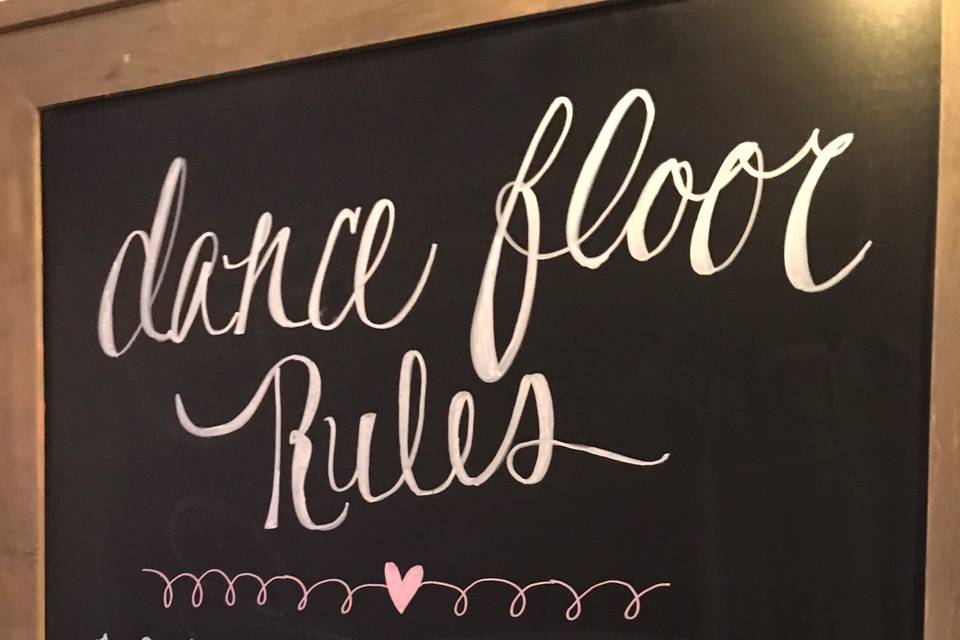 dance floor
Rules